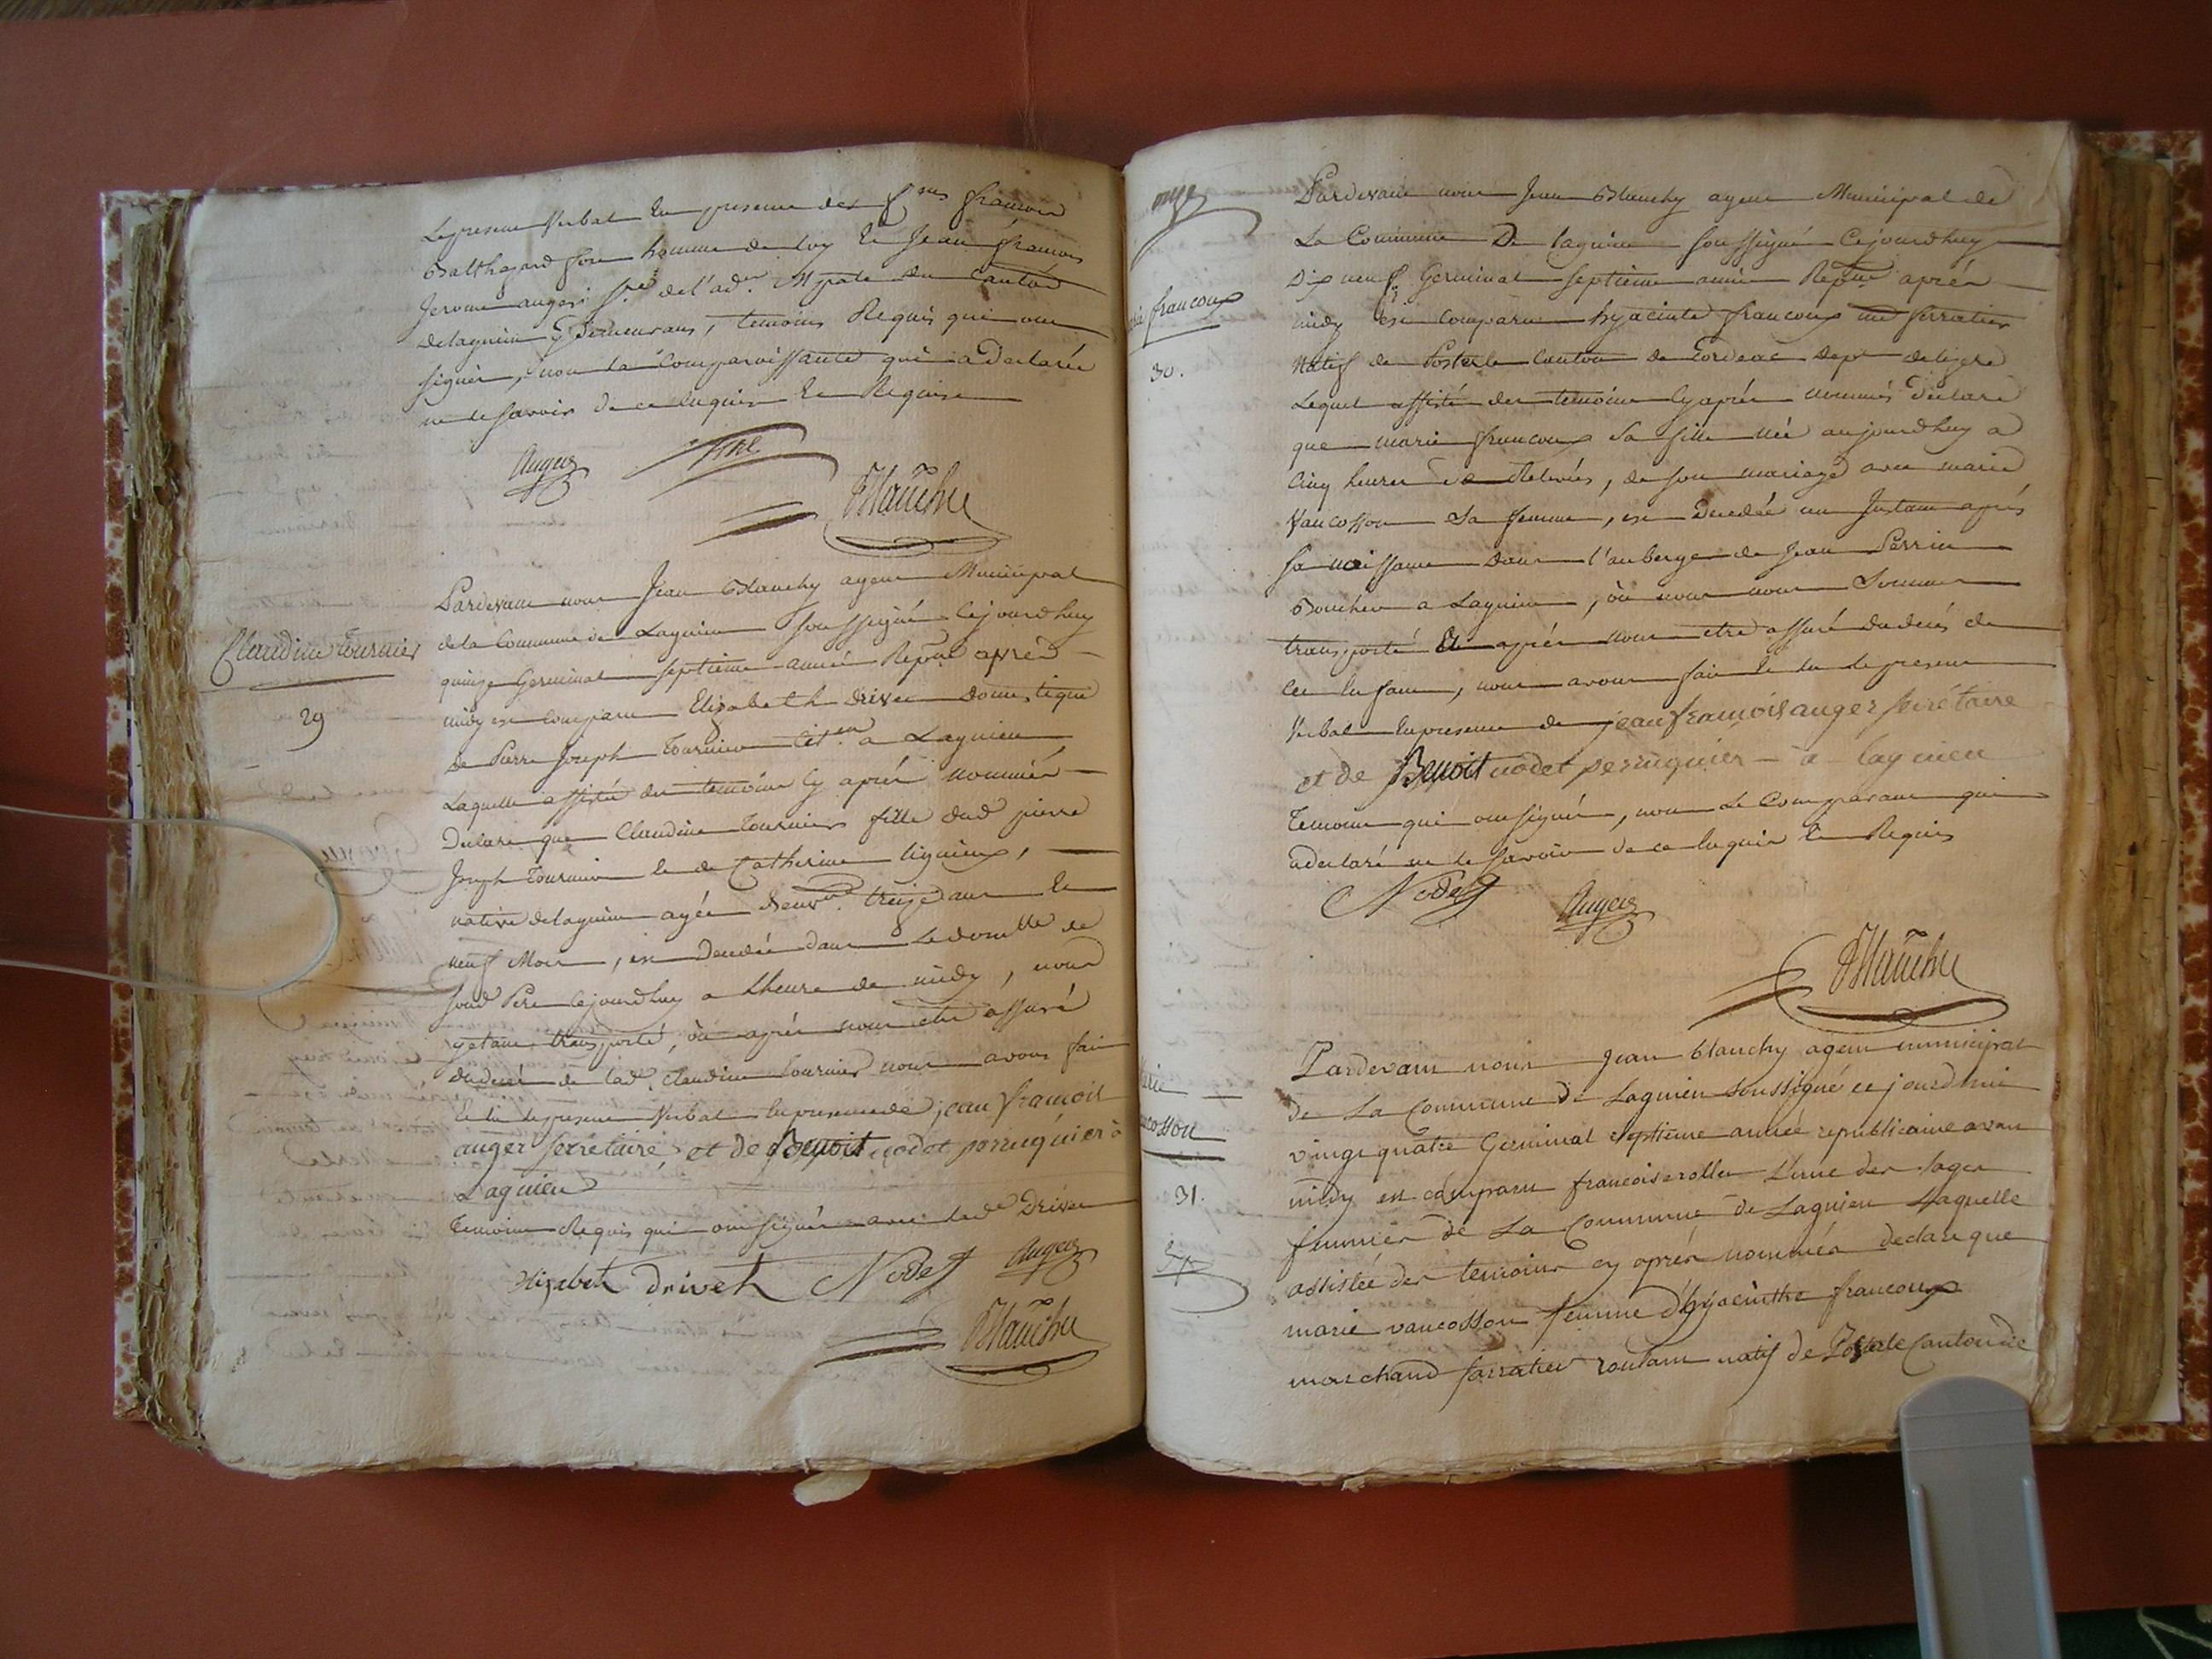 Le present Verbal En presence des f.res francois
Balthazard fine homme de loy Et Jean francois
Jerome auger S.re del'ad.on Mpale du Canton
delagnieu y demeurans, temoins Requis qui ont
signés, non la Comparoissante qui a declarée
ne le scavoir de ce Enquise Et Requise
Auger fine
Blanchy
Pardevant nous Jean Blanchy agent Municipal
de la Commune de Lagnieu soussigné Cejourdhuy
quinze Germinal septieme année Repne apres
midy est comparu Elizabeth drivet domestique
de Pierre Joseph Tournier Cit.en a Lagnieu
Laquelle assistée des temoins Cy aprés nommés
Declare que Claudine Tournier fille dud pierre
Joseph Tournier Et de Catherine liguieux,
native delagnieu agée d'env.on treize ans Et
neuf Mois, est Decedée dans Le domille de
soud Pere Cejourdhuy a Lheure de midy, nous
y etant transporté, où aprés nous etre assuré
dudecés de lad. Claudine Tournier nous avons fait
Et lu Lepresent Verbal Enpresence de jean francois
auger secretaire et de Benoit nodet perruquier à
Lagnieu
Temoins Requis qui ont signés avec lade Drivet
Elizabeth drivet Nodet Auger
Blanchy
Claudine Tournier
29
onze
Pardevant nous Jean Blanchy agent Municipal de
La Commune De lagnieu soussigné Cejourdhuy
Dix neuf Germinal septieme année Repne aprés
midy est Comparu hyacinte francoux md ferratier
Natif de Posterle Canton de Dept delizere
Lequel assisté des temoins Cyaprés nommés Declare
que marie francoux Sa fille née aujourdhuy a
Cinq heures de Relevés, de son mariage avec marie
Vaucosson Sa femme, est Decedée un Jnstant aprés
sa naissance dans l'auberge de Jean Perrin
Boucher a Lagnieu, où nous nous Sommes
transporté Et aprés nous etre assuré dudecés de
Cet Enfant, nous avons fait Et lu Le present
Verbal Enpresence de jean francois auger secrétaire
et de Benoit nodet perruquier à lagnieu
Temoins qui ont signés, non Le Comparant qui
adeclaré ne le scavoir de ce Enquis Et Requis
Nodet Auger
Blanchy
francoux
30.
Pardevant nous Jean blanchy agent municipal
de La Commune de Lagnieu soussigné ce jourdhui
vingt quatre Germinal septieme année republicaine avant
midy est comparu francoise rollet L'une des sages
femmes de La Commune de Lagnieu Laquelle
assistée des temoins cy aprés nommés declare que
marie vaucosson femme d'hyacinthe francoux
marchand ferratier roulant natif de Posterle Canton de
31.